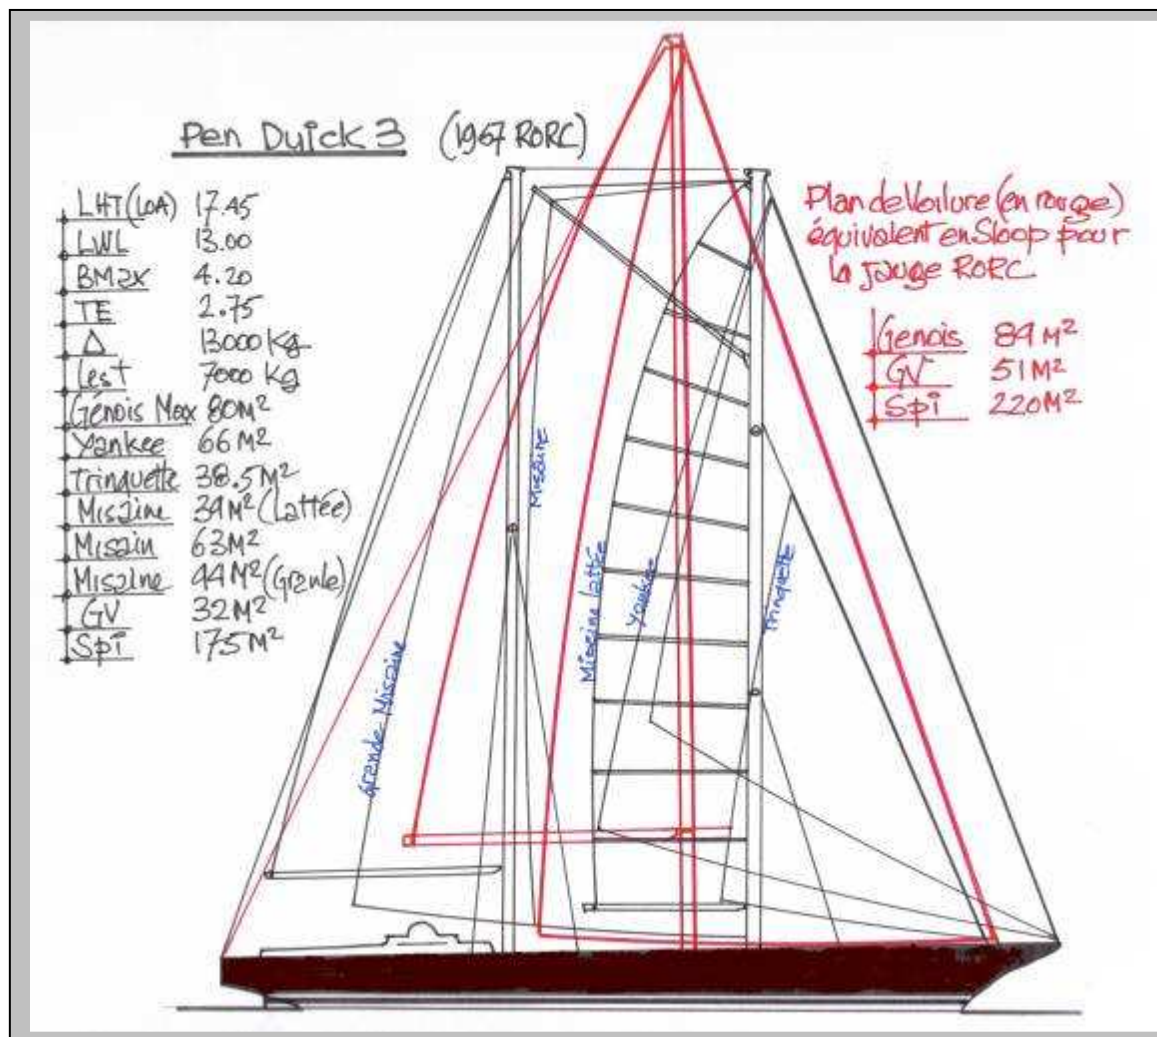 Pen Duick 3 (1967 RORC)
LHT (LOA) 17.45
LWL 13.00
BMax 4.20
TE 2.75
Δ 13000 Kg
Lest 7000 Kg
Génois Max 80M²
Yankee 66M²
Trinquette 38.5M²
Misaine 34M² (Lattée)
Misain 63M²
Misaine 44M² (Grande)
GV 32M²
Spi 175M²
Plan de Voilure (en rouge)
équivalent en Sloop pour
la Jauge RORC
Genois 84M²
GV 51M²
Spi 220M²
Misaine
Misaine lattée
Yankee
Trinquette
Grande Misaine